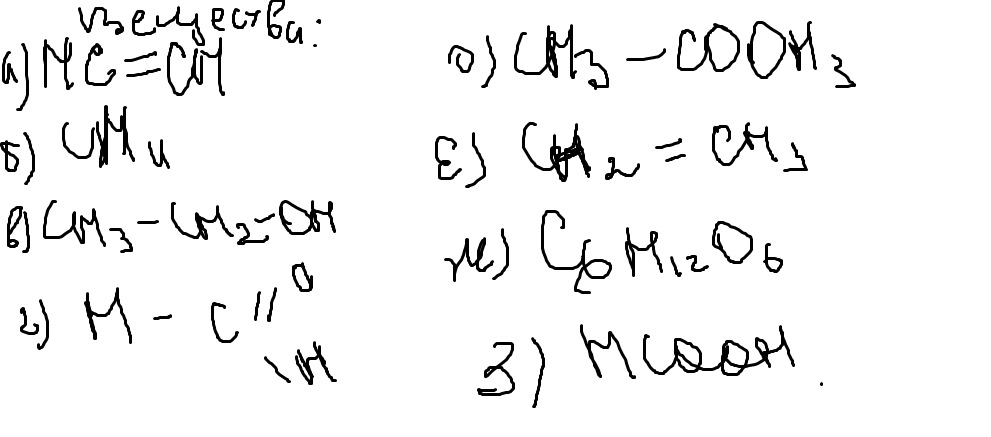 вещества:
а) HC=CH
б) CH4
в) CH3-CH2-OH
г) H-C//O
\H
д) CH3-COOH3
е) CH2=CH3
ж) C6H12O6
з) HCOOH.